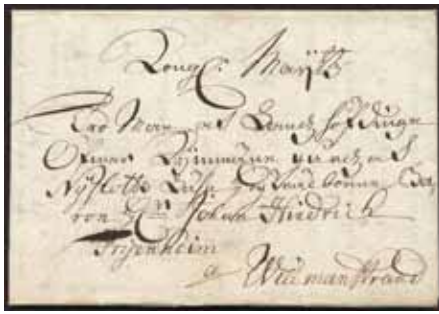 Kongl. Maij:ts
Tro Man och Landzhöfdinge
öfwer Kymmene gårdz och
Nÿslotts Lähn
ron H:r Johan Hindrich
Frisenheim
a Willmanstrand